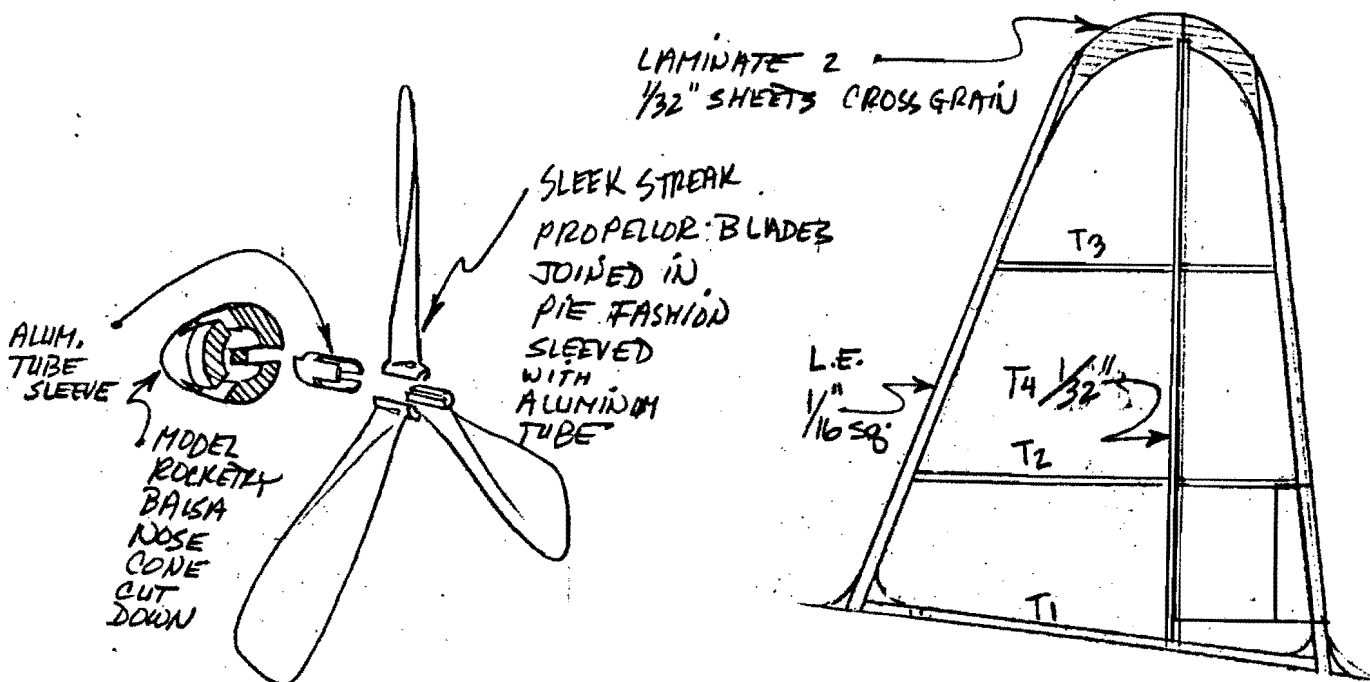 LAMINATE 2
1/32" SHEETS CROSS GRAIN
SLEEK STREAK
PROPELLOR: BLADES
JOINED IN
PIE FASHION
SLEEVED
WITH
ALUMINUM
TUBE
ALUM.
TUBE
SLEEVE
MODEL
ROCKETRY
BALSA
NOSE
CONE
CUT
DOWN
T3
L.E.
1/16" SQ.
T4 1/32"
T2
T1